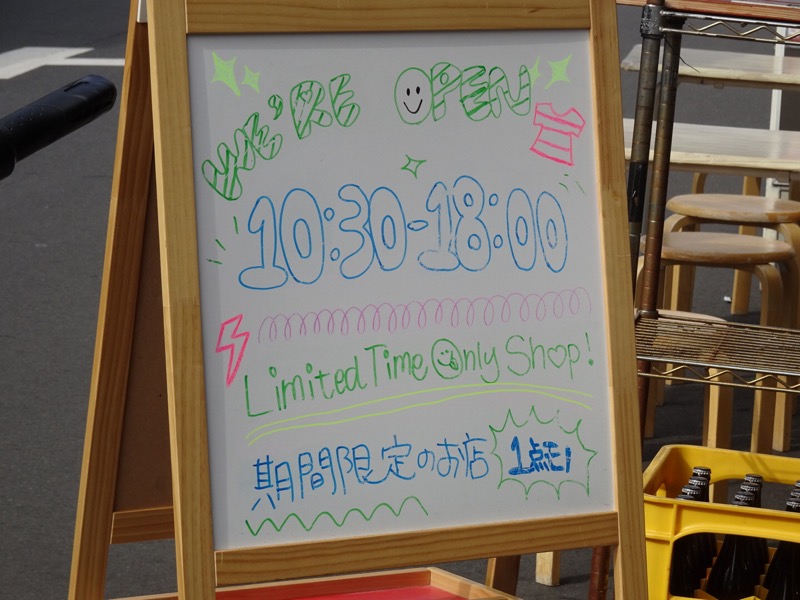 WE'RE OPEN
10:30-18:00
Limited Time Only Shop!
期間限定のお店
1点モノ